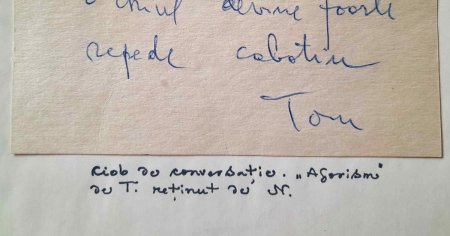 Omul devine foarte
repede cabotin
Tom
Ciob de conversație. „Aforism”
de T. reținut de N.